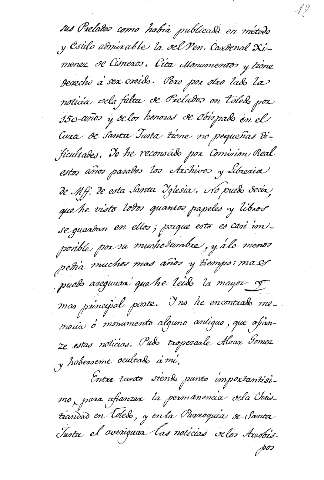 sus Prelados como havia publicado en metodo
y Estilo admirable la del Ven. Cardenal Xi-
menez de Cisneros. Cita Monumentos y tiene
derecho á ser creido. Pero por otro lado la
noticia dela falta de Prelados en Toledo por
350 años y de los honores de Obispado en el
Cura de Santa Justa tiene no pequeñas di-
ficultades. Yo he reconocido por Comision Real
estos años pasados los Archivos y Libreria
de Mss. de esta Santa Iglesia. No puedo decir,
que he visto todos quantos papeles y libros
se guardan en ellos; porque esto es casi im-
posible por su muchedumbre, y álo menos
pedia muchos mas años y tiempo: mas
puedo asegurar que he leido la mayor y
mas principal parte. Y no he encontrado me-
moria ó monumento alguno antiguo, que afian-
ze estas noticias. Pudo tropezarle Alvar Gomez
y haberseme ocultado á mi.
Entre tanto siendo punto importantisi-
mo, para afianzar la permanencia dela Chris-
tiandad en Toledo, y en la Parroquia de Santa
Justa el averiguar las noticias delos Arzobis-
pos